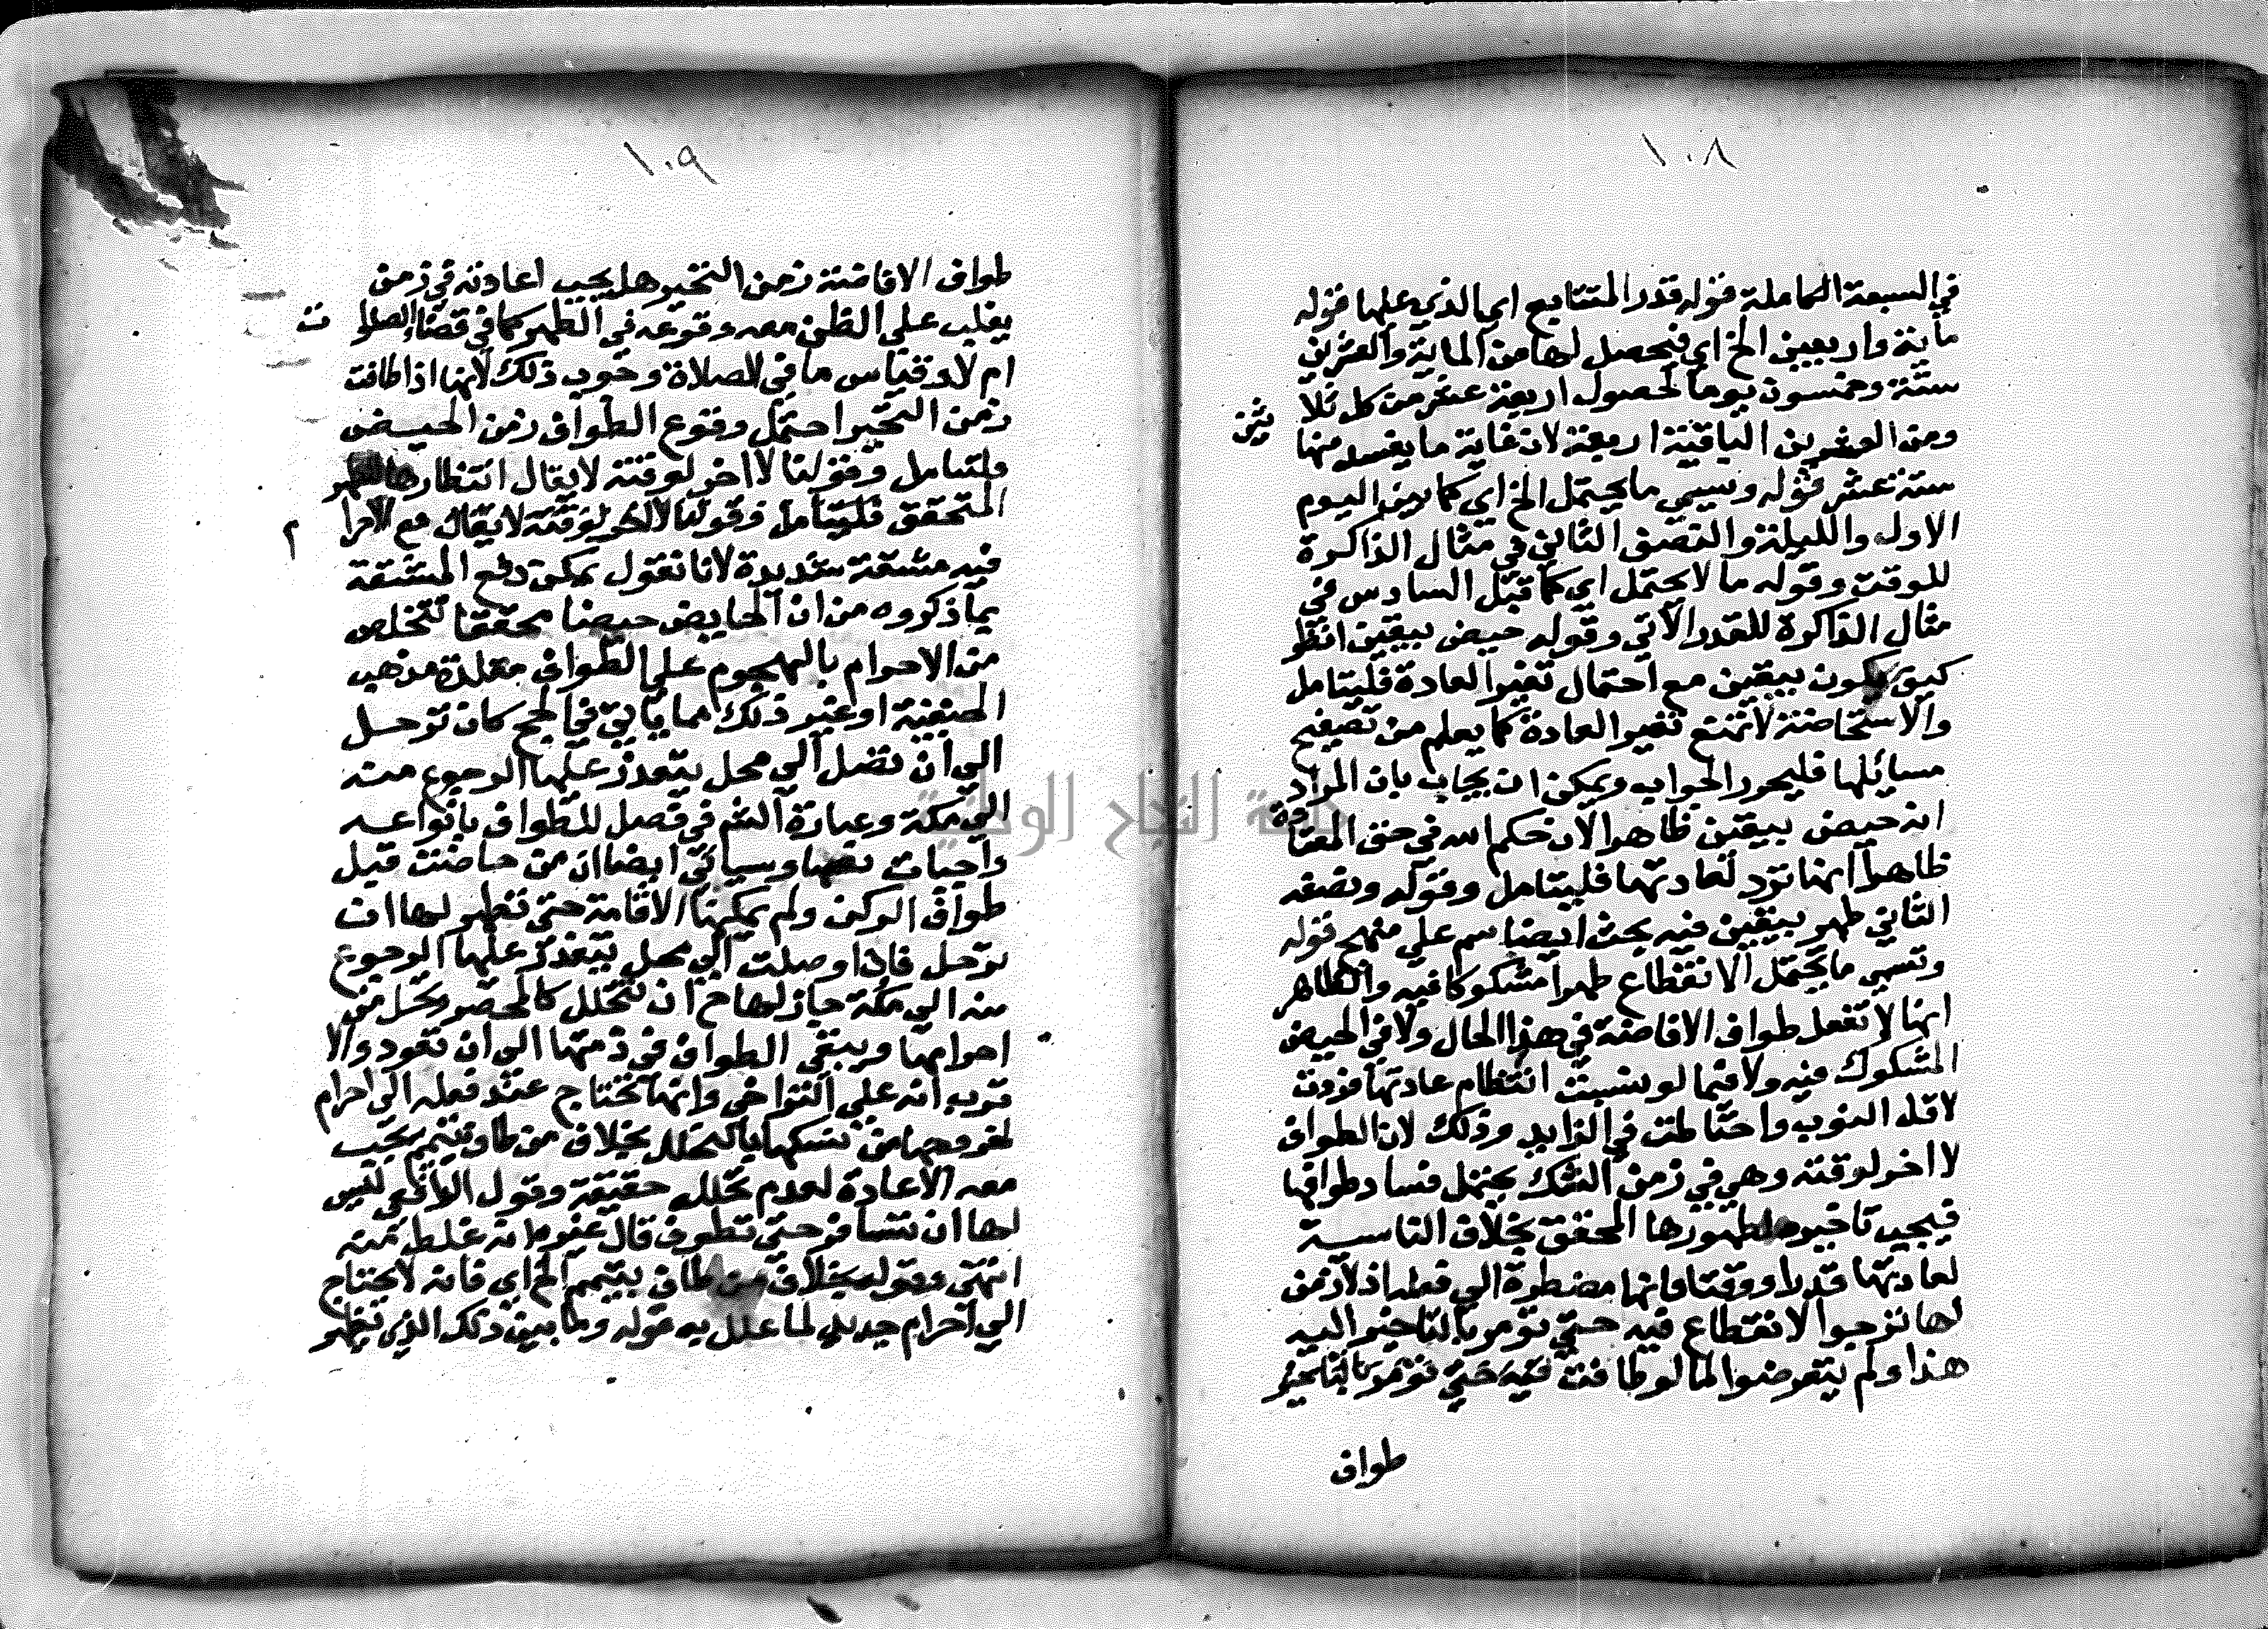 ١٠٨
في السبعة الكاملة قوله قدر المتتابع اي الذي عليها قوله
ماية واربعين الخ اي فيحصل لها من الماية والعشرين
ستة وخمسون يوما لحصول اربعة عشر من كل ثلا ثين
ومن العشرين الباقية اربعة لان غاية ما يفسد منها
ستة عشر قوله وسمي ما يحتمل الخ اي كما بين اليوم
الاول والليلة والنصف الثاني في مثال الذاكرة
للوقت وقوله ما لا يحتمل اي كما قبل السادس في
مثال الذاكرة للقدر الآتي وقوله حيض بيقين انظر
كيف يكون بيقين مع احتمال تغير العادة فليتامل
والاستحاضة لا تمنع تغير العادة كما يعلم من تصفح
مسائلها فليحرر الجواب ويمكن ان يجاب بان المراد
انه حيض بيقين ظاهرا لان حكم الله في حق المعتادة
ظاهرا انها ترد لعادتها فليتامل وقوله ونصفه
الثاني طهر بيقين فيه بحث ايضا سم علي منهج قوله
وتسمي ما يحتمل الانقطاع طهرا مشكوكا فيه والظاهر
انها لا تفعل طواف الافاضة في هذا الحال ولا في الحيض
المشكوك فيه ولا فيما لو نسيت انتظام عادتها فردت
لاقل النوب واحتاطت في الزايد وذلك لان الطواف
لا اخر لوقته وهي في زمن الشك يحتمل فساد طوافها
فيجب تاخيره لطهورها المحقق بخلاف الناسية
لعادتها قدرا ووقتا فانها مضطرة الي فعله اذ لا زمن
لها ترجوا الانقطاع فيه حتي تؤمر بالتاخير اليه
هذا ولم يتعرضوا لما لو طافت فيه حتي تؤمر بالتاخير
طواف
١٠٩
طواف الافاضة زمن التحير هل يجب اعادته في زمن
يغلب علي الظن معه وقوعه في الطهر كما في قضاء الصلوا ت
ام لا وقياس ما في الصلاة وجوب ذلك لانها اذا طافت
زمن التحير احتمل وقوع الطواف زمن الحيض
وليتامل وقولنا لا اخر لوقته لا يقال انتظارها للطهر
المتحقق فليتامل وقولنا لا اخر لوقته لا يقال مع الاحرا م
فيه مشقة شديدة لانا نقول يمكن دفع المشقة
بما ذكروه من ان الحايض حيضا محققا تتخلص
من الاحرام بالهجوم علي الطواف مقلدة مذهب
الحنفية او غير ذلك مما ياتي في الحج كان ترحل
الي ان تصل الي محل يتعذر عليها الرجوع منه
الي مكة وعبارة الشم في فصل للطواف بانواعه
واجبات نصها وسياتي ايضا ان من حاضت قبل
طواف الركن ولم يمكنها الاقامة حتي تطهر لها ان
ترحل فاذا وصلت الي محل يتعذر عليها الرجوع
منه الي مكة جاز لها ح ان تتحلل كالمحصر وتحل من
احرامها ويبقي الطواف في ذمتها الي ان تعود والا
قرب انه علي التراخي وانها تحتاج عند فعله الي احرام
لخروجها من نسكها بالتحلل بخلاف من طاف بتيمم يجب
معه الاعادة لعدم تحلله حقيقة وقول الرافعي ليس
لها ان تسافر حتي تطوف قال غيره انه غلط منه
انتهي وقوله بخلاف من طاف بتيمم الخ اي فانه لا يحتاج
الي احرام جديد لما علل به قوله وما بين ذلك الذي تظهر
جامعة النجاح الوطنية